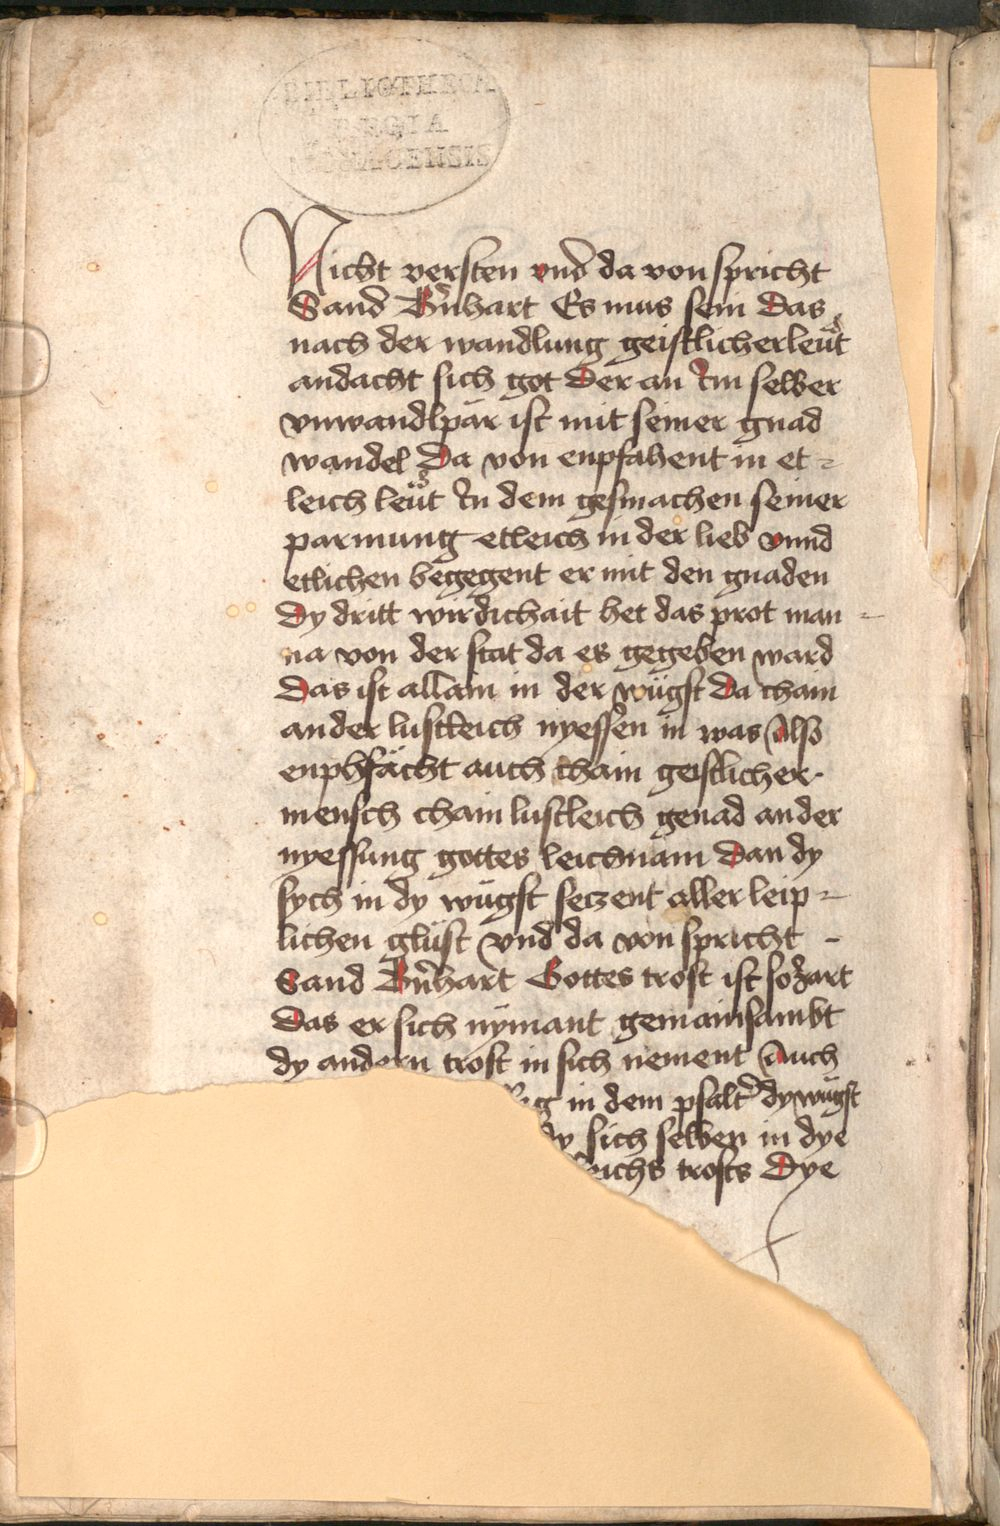 BIBLIOTHECA
REGIA
MONACENSIS
Nicht versten vnd da von spricht
Sand Bernhart Es mus sein Das
nach der wandlung geistlicherleüt
andacht sich got Der an Im selber
vnwandlpär ist mit seiner gnad
wandel Da von enpfahent in et-
leich leüt In dem gesmachen seiner
parmung etleich in der lieb vnnd
etlichen begegent er mit den gnaden
Dy dritt wirdichait het das prot man-
na von der stat da es gegeben ward
Das ist allain in der wügst Da cham
ander lustleich nyessen in was Also
enphfächt auch chain geistlicher
mensch chain lustleich genad ander
nyessung gottes leichnam Dan dy
sych in dy wügst seczent aller leip-
lichen glüst vnd da von spricht -
Sand Bernhart Gottes trost ist so zart
Das er sich nymant gemainsambt
dy andern trost in sich nement Auch
in dem psalter dy wügst
dy sich selben in dye
trosts Dye